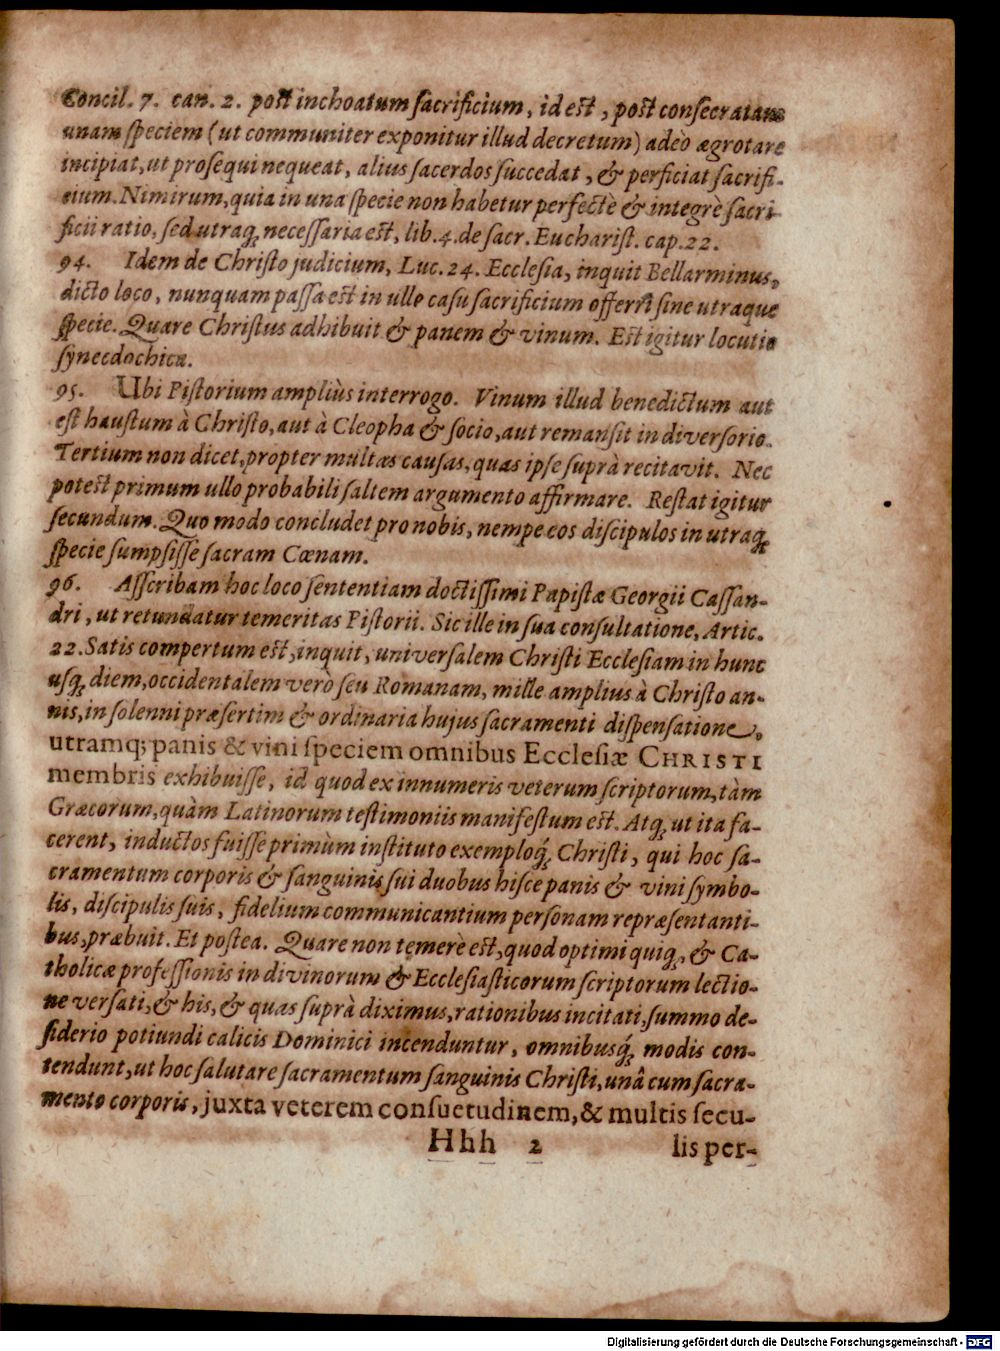 Concil. 7. can. 2. poſt inchoatum ſacrificium, id eſt, poſt conſecratam
unam ſpeciem (ut communiter exponitur illud decretum) adeò ægrotare
incipiat, ut proſequi nequeat, alius ſacerdos ſuccedat, & perficiat ſacrifi-
cium. Nimirum, quia in una ſpecie non habetur perfectè & integrè ſacri-
ficii ratio, ſed utraq; neceſſaria eſt, lib. 4. de ſacr. Euchariſt. cap. 22.
94. Idem de Chriſto judicium, Luc. 24. Eccleſia, inquit Bellarminus,
dicto loco, nunquam paſſa eſt in ullo caſu ſacrificium offerri ſine utraque
ſpecie. Quare Chriſtus adhibuit & panem & vinum. Eſt igitur locutio
ſynecdochica.
95. Ubi Piſtorium ampliùs interrogo. Vinum illud benedictum aut
eſt hauſtum à Chriſto, aut à Cleopha & ſocio, aut remanſit in diverſorio.
Tertium non dicet, propter multas cauſas, quas ipſe ſuprà recitavit. Nec
poteſt primum ullo probabili ſaltem argumento affirmare. Reſtat igitur
ſecundum. Quo modo concludet pro nobis, nempe eos diſcipulos in utraq;
ſpecie ſumpſiſſe ſacram Cœnam.
96. Aſſcribam hoc loco ſententiam doctiſſimi Papiſtæ Georgii Caſſan-
dri, ut retundatur temeritas Piſtorii. Sic ille in ſua conſultatione, Artic.
22. Satis compertum eſt, inquit, univerſalem Chriſti Eccleſiam in hunc
uſq; diem, occidentalem verò ſeu Romanam, mille amplius à Chriſto an-
nis, in ſolenni præſertim & ordinaria hujus ſacramenti diſpenſatione,
utramq; panis & vini ſpeciem omnibus Eccleſiæ CHRISTI
membris exhibuiſſe, id quod ex innumeris veterum ſcriptorum, tàm
Græcorum, quàm Latinorum teſtimoniis manifeſtum eſt. Atq; ut ita fa-
cerent, inductos fuiſſe primùm inſtituto exemploq́; Chriſti, qui hoc ſa-
cramentum corporis & ſanguinis ſui duobus hiſce panis & vini ſymbo-
lis, diſcipulis ſuis, fidelium communicantium perſonam repræſentanti-
bus, præbuit. Et poſtea. Quare non temerè eſt, quod optimi quiq;, & Ca-
tholicæ profeſſionis in divinorum & Eccleſiaſticorum ſcriptorum lectio-
ne verſati, & his, & quas ſuprà diximus, rationibus incitati, ſummo de-
ſiderio potiundi calicis Dominici incenduntur, omnibusq́; modis con-
tendunt, ut hoc ſalutare ſacramentum ſanguinis Chriſti, unâ cum ſacra-
mento corporis, juxta veterem conſuetudinem, & multis ſecu-
Hhh 2 lis per-
Digitalisierung gefördert durch die Deutsche Forschungsgemeinschaft - DFG